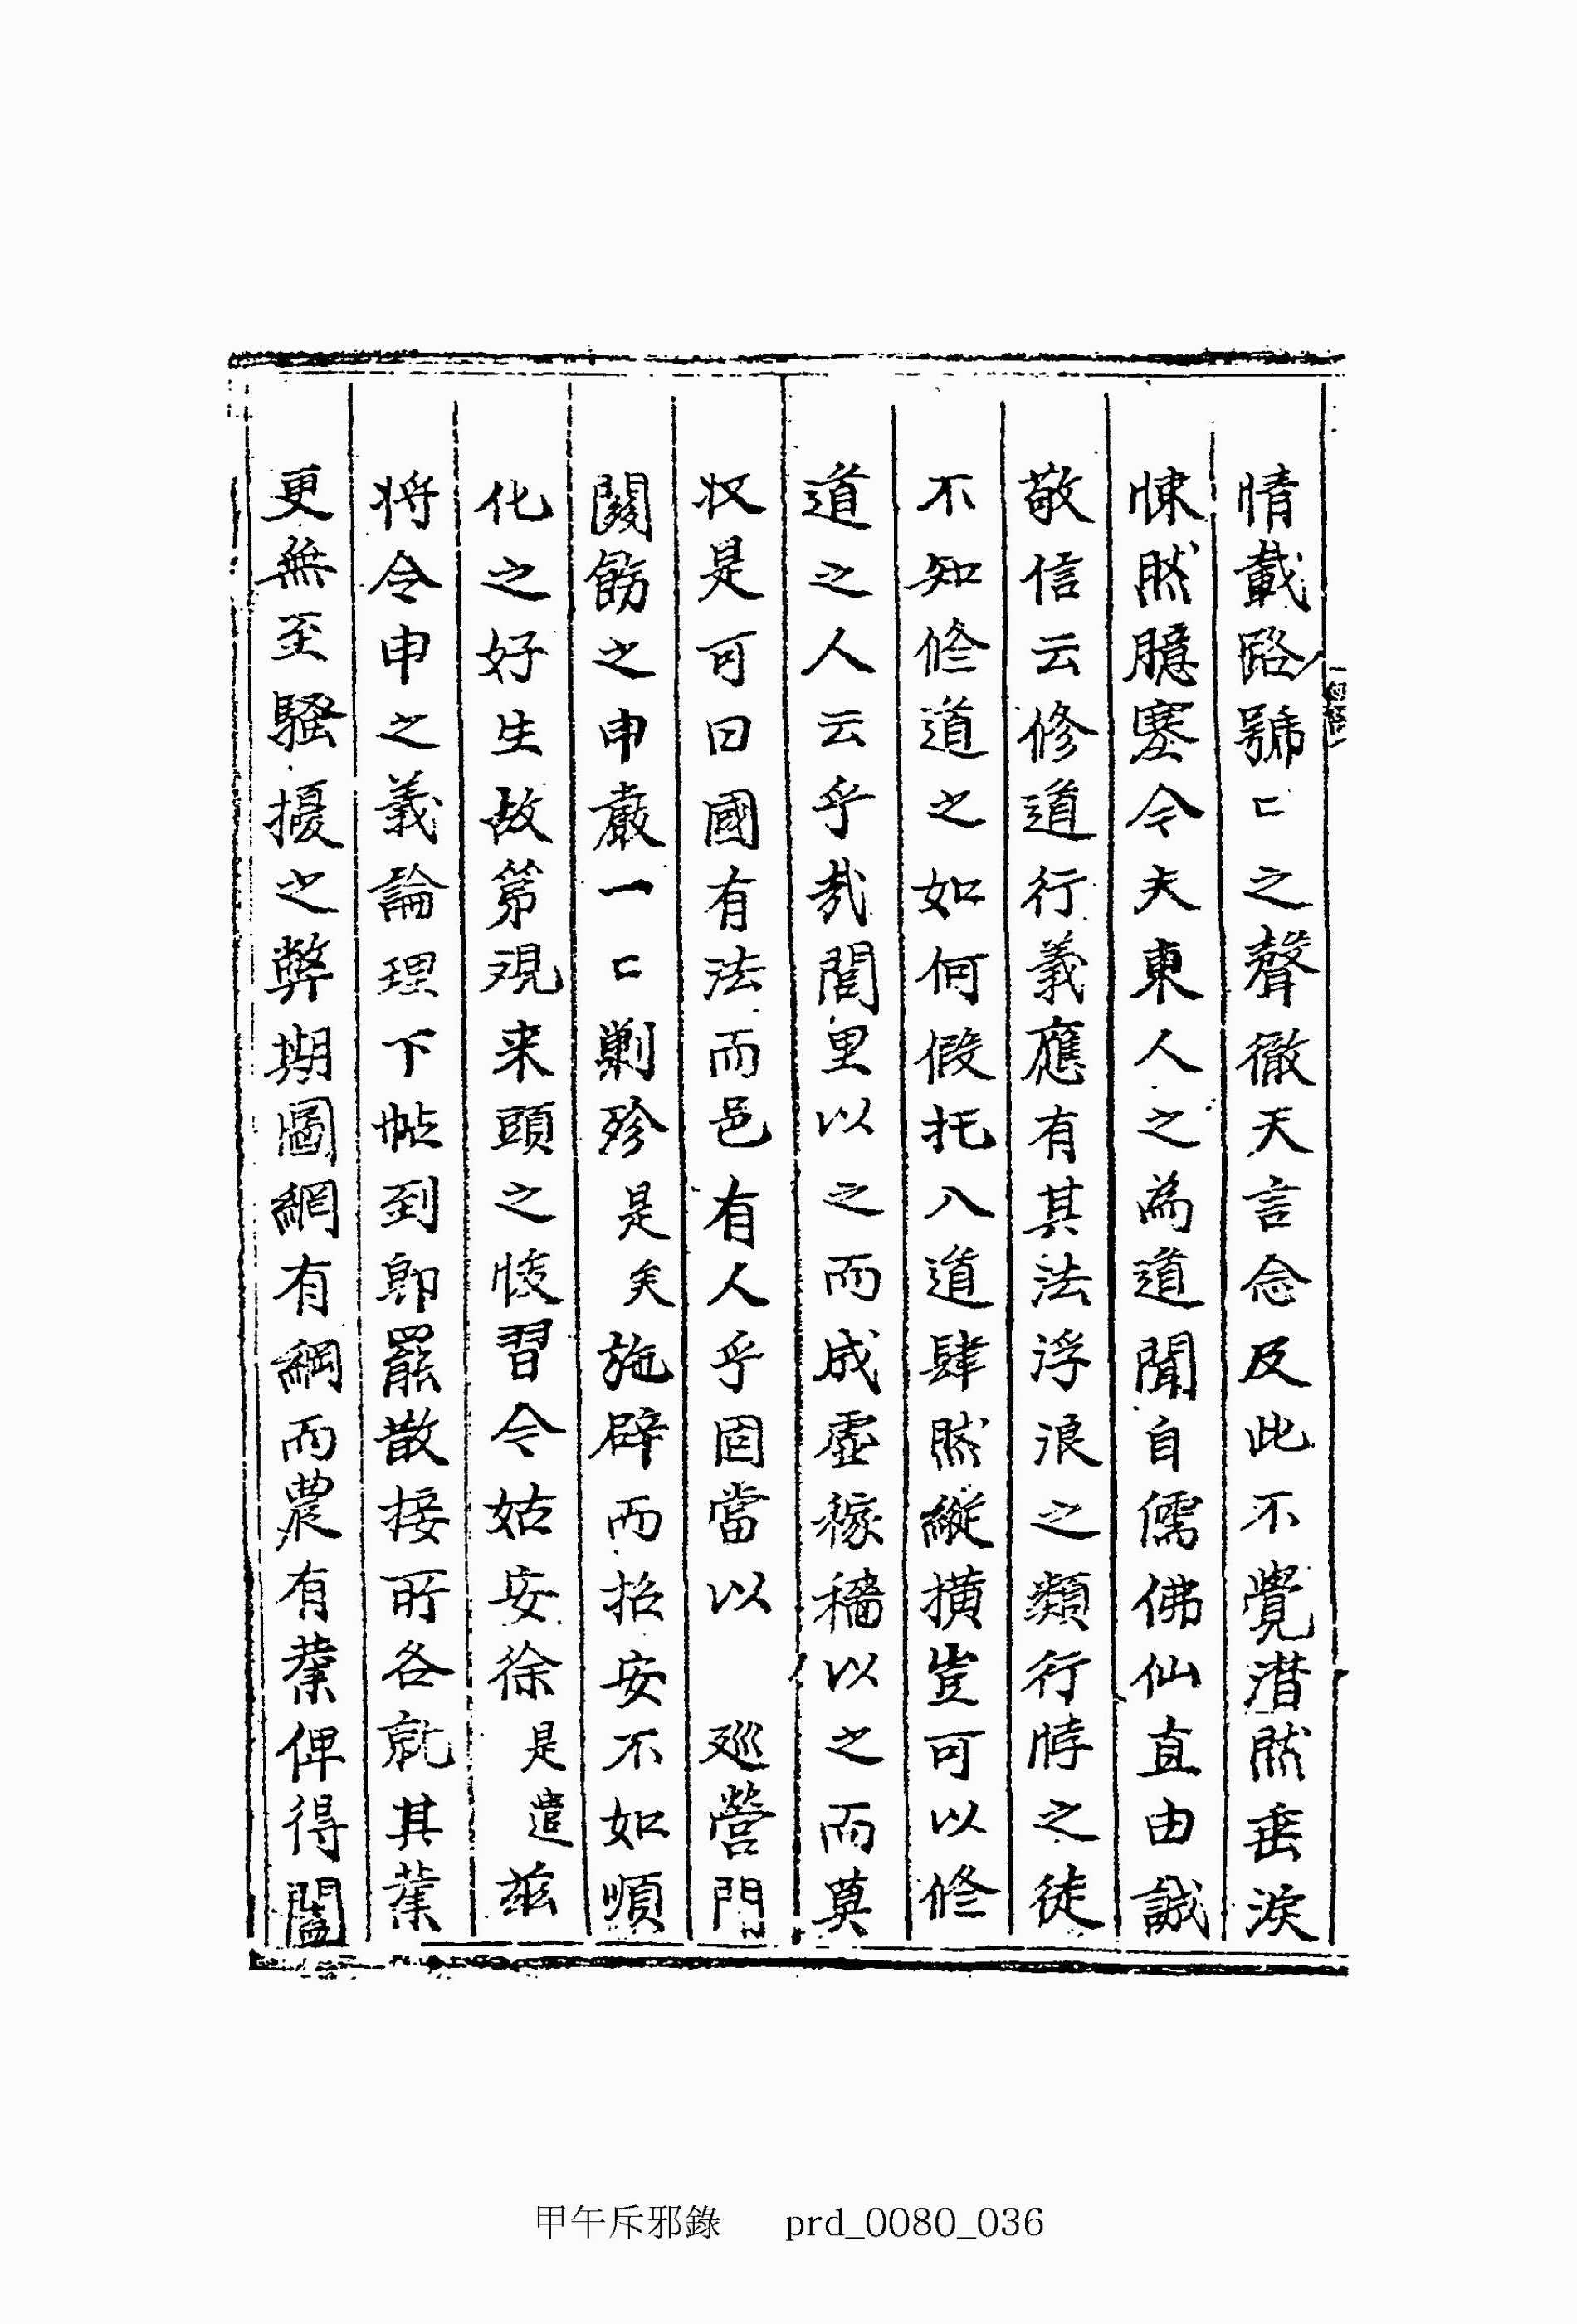 情載路號〻之聲徹天言念及此不覺潸然垂淚
悚然臆塞今夫東人之為道聞自儒佛仙直由誠
敬信云修道行義應有其法浮浪之類行悖之徒
不知修道之如何假托入道肆然縱橫豈可以修
道之人云乎哉閭里以之而成虛稼穡以之而莫
収是可曰國有法而邑有人乎固當以　廵營門
關飭之申嚴一〻剿殄是矣施辟而招安不如順
化之好生故第觀来頭之悛習令姑安徐是遣玆
将令申之義論理下帖到即罷散接所各就其業
更無至騷擾之弊期圖網有綱而農有業俾得闔
甲午斥邪錄　prd_0080_036